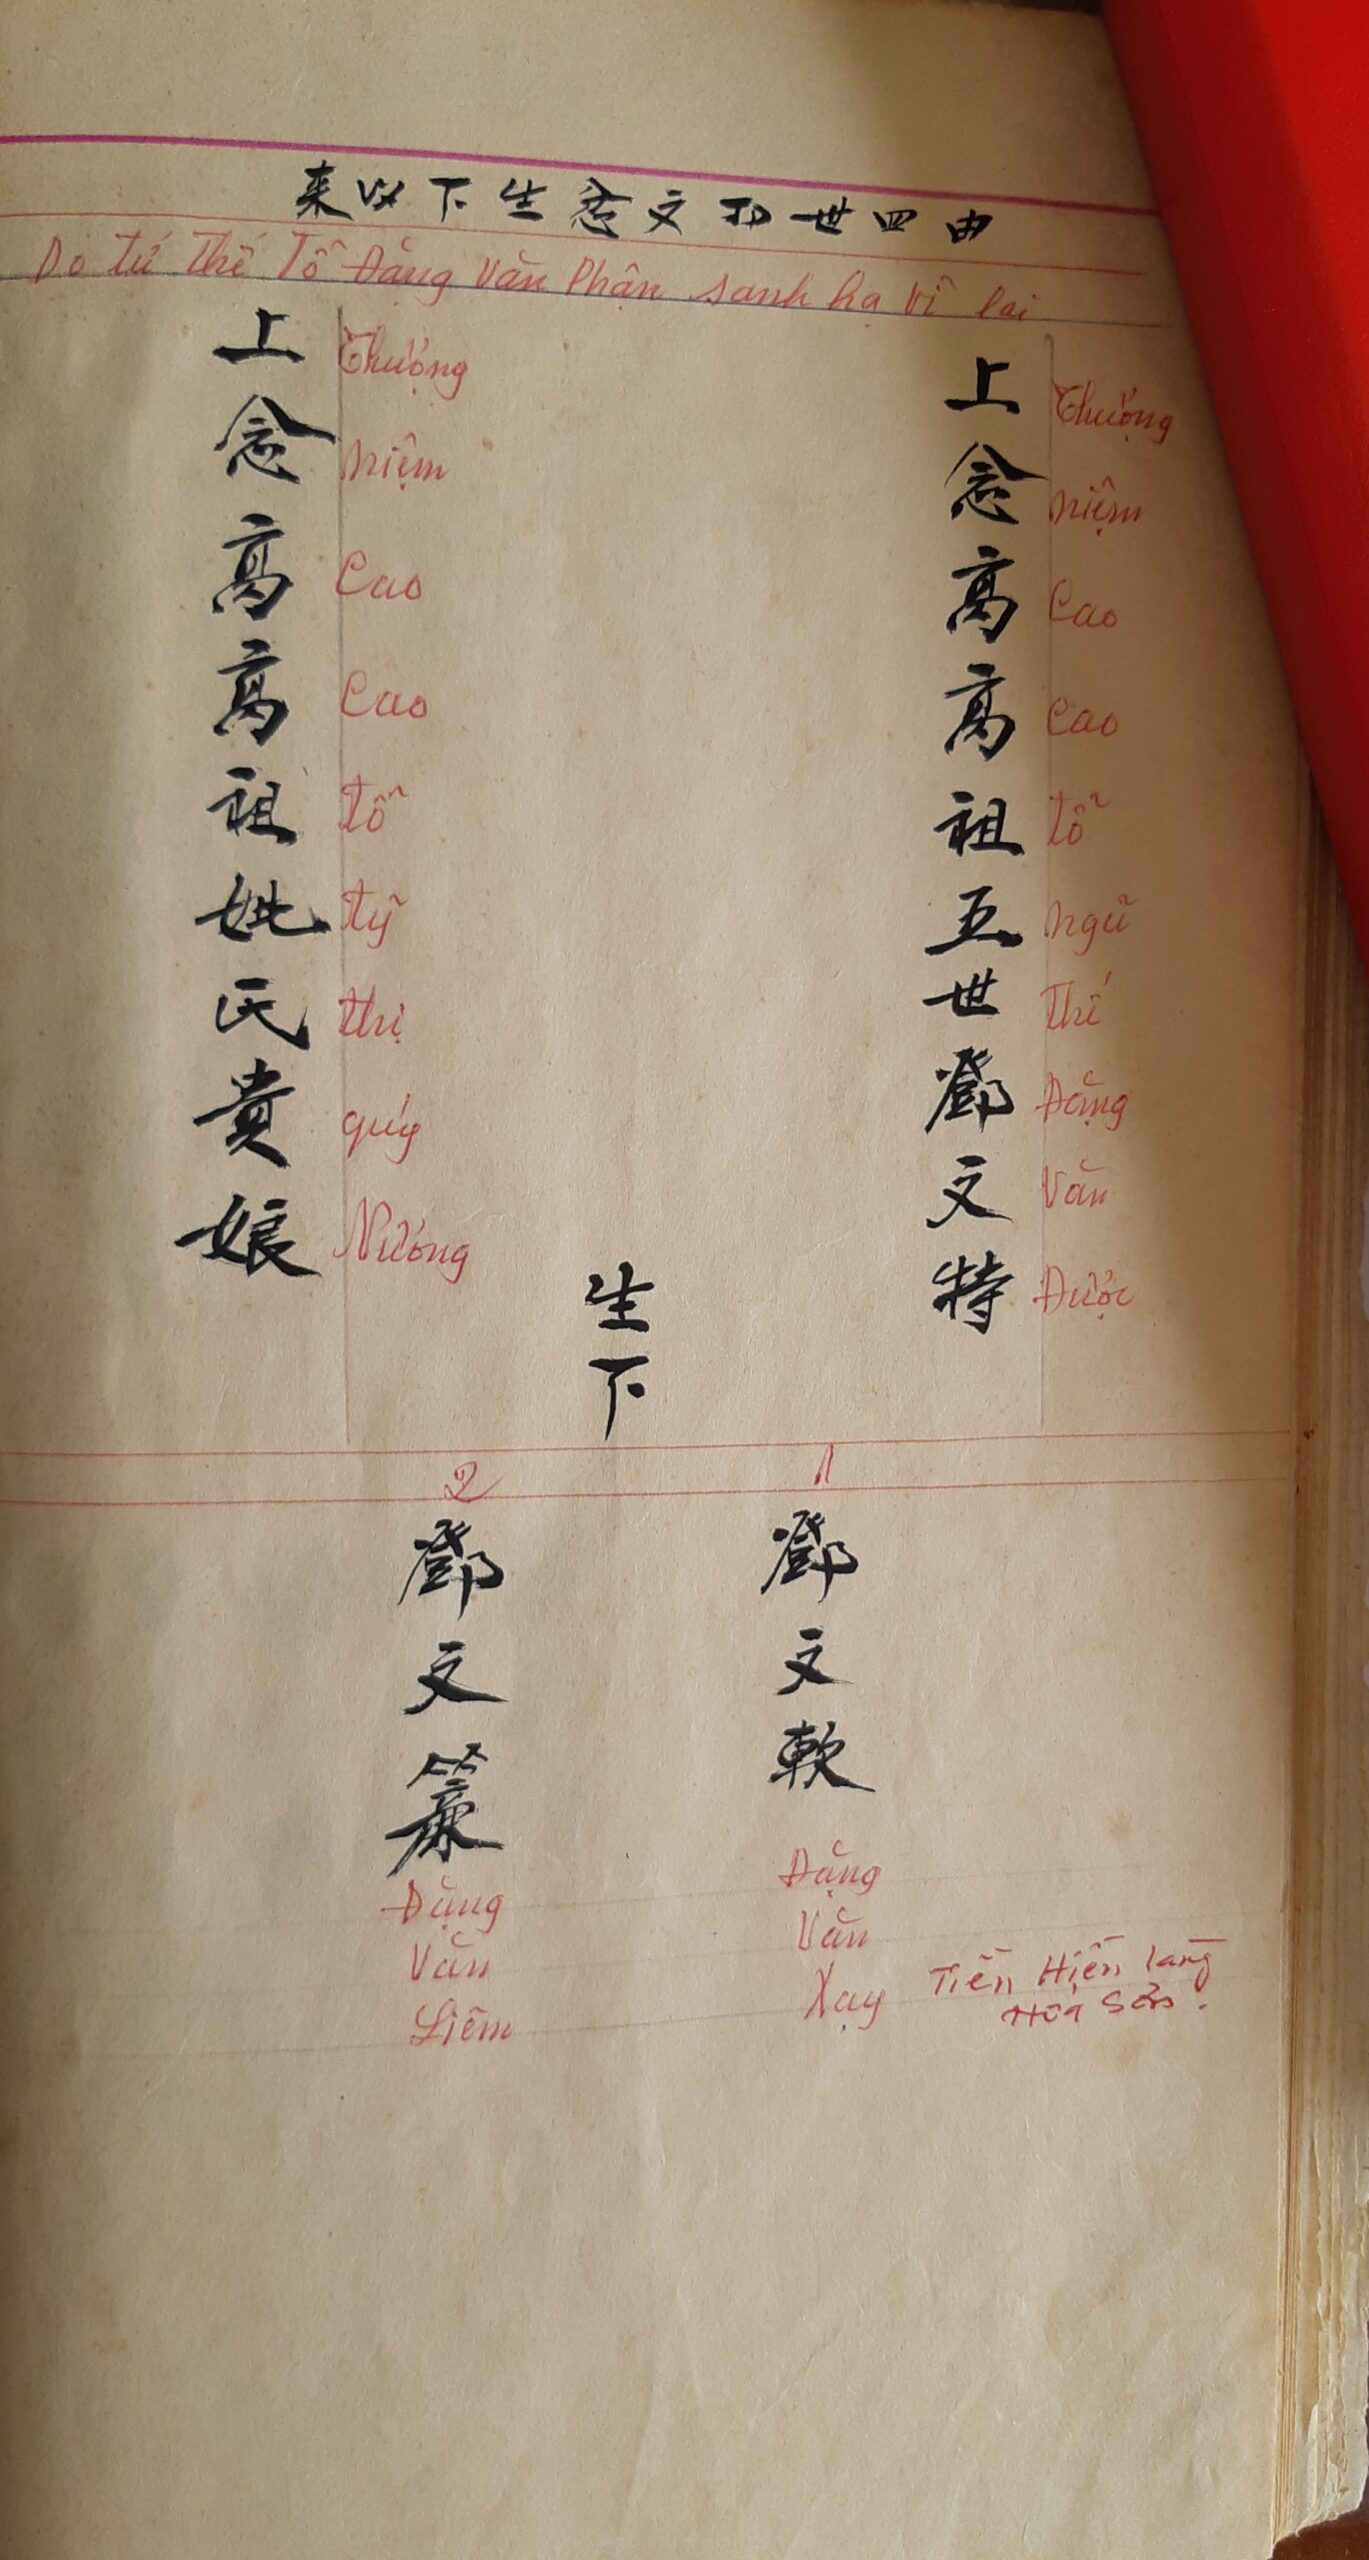 由四世祖文忿生下以来
Do tứ Thế Tổ Đặng Văn Phận sanh hạ vi lai
上念高高祖五世鄧文特
Thượng niệm Cao Cao tổ ngũ Thế Đặng Văn Được
上念高高祖妣氏貴娘
Thượng niệm Cao Cao tổ tỷ thị quý Nương
生下
1
鄧文軟
Đặng Văn Xạy
Tiền Hiền làng Hoà Sơn.
2
鄧文簾
Đặng Văn Liêm